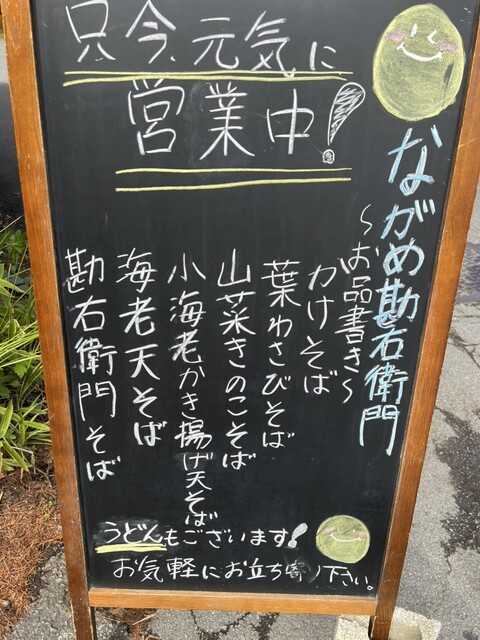 只今元気に
営業中!
ながめ勘右衛門
～お品書き～
かけそば
葉わさびそば
山菜きのこそば
小海老かき揚げ天そば
海老天そば
勘右衛門そば
うどんもございます!
お気軽にお立ち寄り下さい。